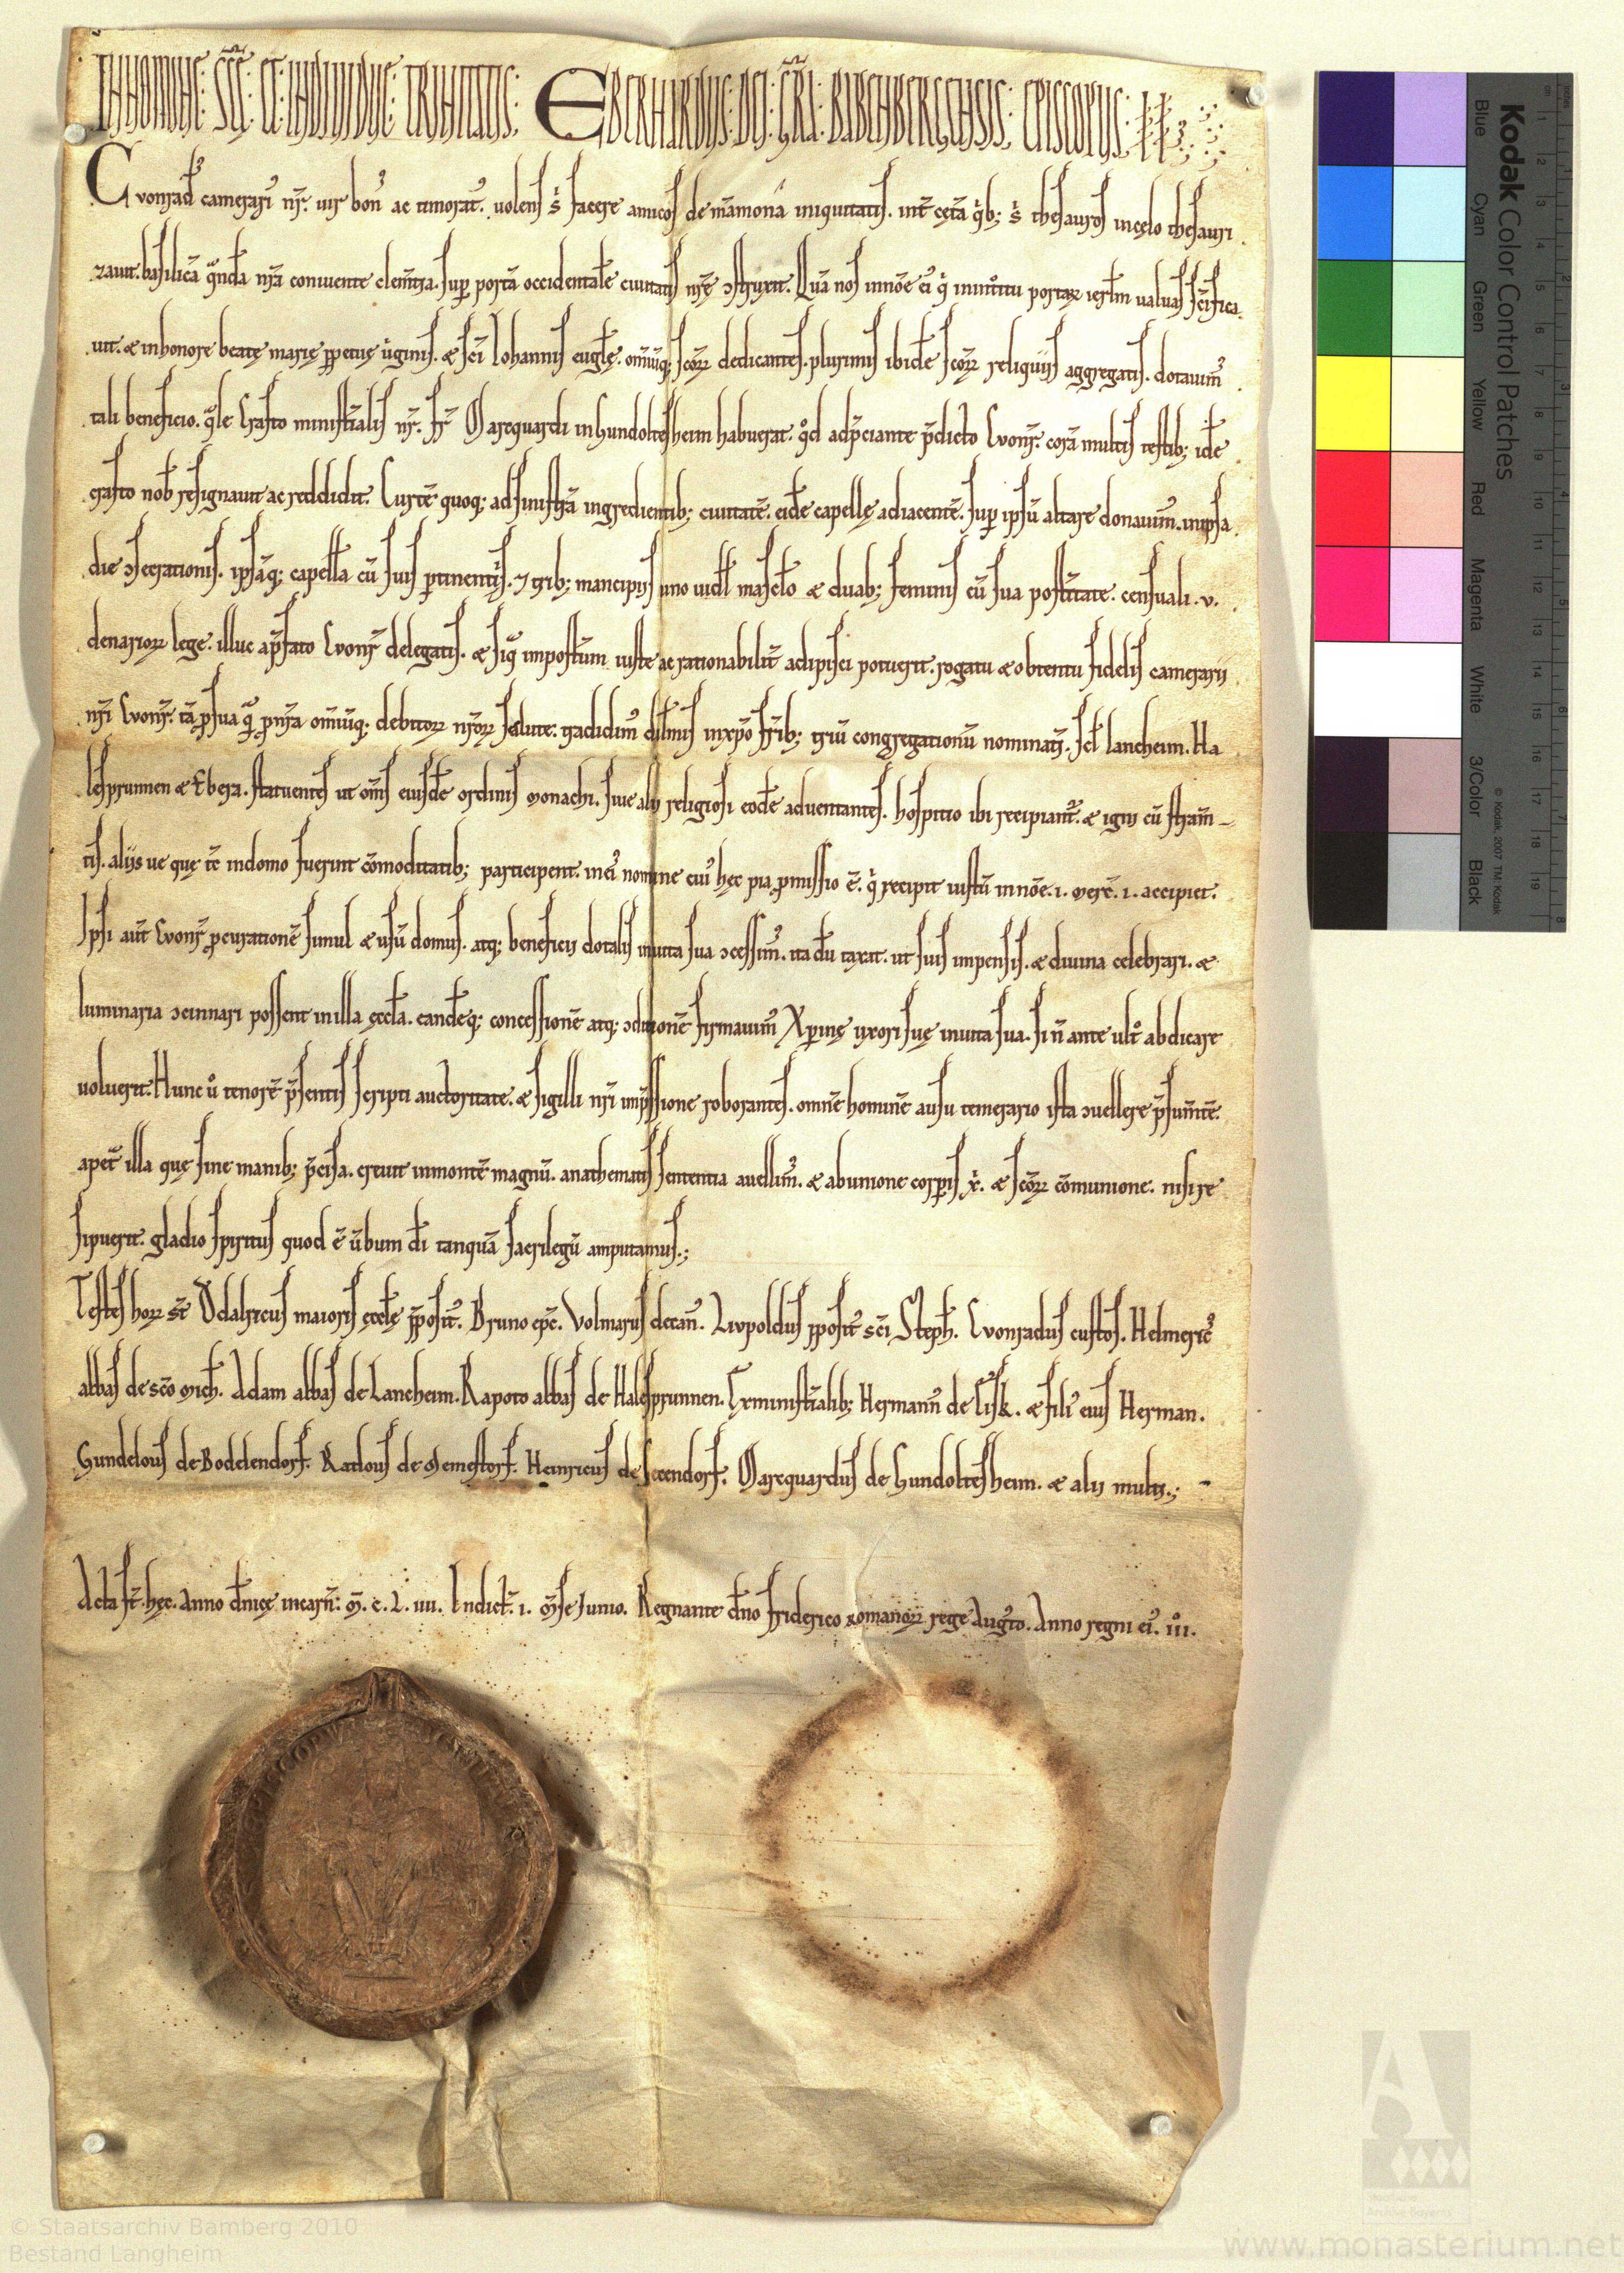 IN NOMINE: SCE: ET: INDIVIDVE: TRINITATIS: EBERHARDVS: DEI: GRA: BABENBERGENSIS: EPISCOPVS:
Cvonrad camerari nr̄. uir bon ac timorat. uolens s facere amicos de mamona iniquitatis. int cęta qb; s thesauros in cęlo thesauri
zauit. basilicā nr̄a conniuente clem̄tia. sup portā occidentalē ciuitatis nrę ɔstruxit. Quā nos in nōe ei q in introitu portaꝝ ierłm ualuas sc̄ifica
uit. & in honore beatę marię ꝑpetuę uirginis. & sc̄i Iohannis euglę. omniūq; sc̄oꝝ dedicantes. plurimis ibidē sc̄oꝝ reliquiis aggregatis. dotauim
tali beneficio. q̄le Crafto ministralis nr̄. fr̄ Marquardi in hundoltesheim habuerat. qd ad p̄ciante p̄dicto Cvonr̄. corā multis testib; idē
crafto nob resignauit ac reddidit. Curtē quoq; ad sinistrā ingredientib; ciuitatē. eidē capellę adiacentē. sup ipsū altare donauim. in ipsa
die ɔsecrationis. ipsāq; capellā cū suis ꝑtinentiis. & trib; mancipiis uno uidł masclo & duab; feminis cū sua post̄itate. censuali .v.
denarioꝝ lege. illuc a p̄fato Cvonr̄ delegatis. & siq̄ in post̄um iuste ac rationabilit̄ adipisci potuerit. rogatu & obtentu fidelis camerarii
nr̄i Cvonr̄. tā ꝑ sua quā ꝑ nr̄a omniūq; debitoꝝ nr̄oꝝ salute: tradidim dil̄mis in xpō fr̄ib; triū congregationū nominatī. scł lancheim. Ha
lesprunnen & Ebera. statuentes ut om̄s eiusdē ordinis monachi. siue alii religiosi eodē aduentantes. hospitio ibi recipiant̄. & igni cū stram̄
tis. aliis ue quę tc̄ in domo fuerint cōmoditatib; participent. in ei nomine cui hęc pia ꝓmissio ē. q recipit iustū in nōe .i. mercē .i. accipiet.
Ipsi aut̄ Cvonr̄ ꝓcurationē simul & usū domus. atq; beneficii dotalis in uita sua ɔcessim. ita dū taxat. ut suis impensis. & diuina celebrari. &
luminaria ɔcinnari possent in illa ęccła. eandēq; concessionē atq; ɔditionē firmauim Xpinę uxori suę in uita sua. si n̄ ante ult abdicare
uoluerit. Hunc u tenorē p̄sentis scripti auctoritate. & sigilli nr̄i imp̄ssione roborantes. omnē hominē ausu temerario ista ɔuellere p̄sum̄tē.
a petra illa quę sine manib; p̄cisa. creuit in montē magnū. anathematis sententia auellim. & ab unione corꝑis x. & sc̄oꝝ cōmunione. nisi re
sipuerit. gladio spiritus quod ē ūbum dī tanquā sacrilegū amputamus.;
Testes hoꝝ st̄ Vdalricus maioris ęccłę p̄posit. Bruno ep̄c. Volmarus decan. Livpoldus p̄posit sc̄i Steph. Cvonradus custos. Helmeric
abbas de sc̄o mich. Adam abbas de Lancheim. Rapoto abbas de Halesprunnen. Ex ministralib; Hermann de Lisk. & fili eius Herman.
Gundelous de Bodelendorf. Ratlous de Memestorf. Heinricus de secendorf. Marquardus de hundoltesheim. & alii multi.;
Acta st̄ hęc. Anno dn̄icę incarn̄. M. C. L. IIII. Indict̄. I. m̄se Iunio. Regnante dn̄o Friderico romanoꝝ rege Augto. Anno regni ei. III.
Kodak Color Control Patches
Blue Cyan Green Yellow Red Magenta White 3/Color Black
© Kodak, 2007 TM: Kodak
© Staatsarchiv Bamberg 2010
Bestand Langheim
www.monasterium.net